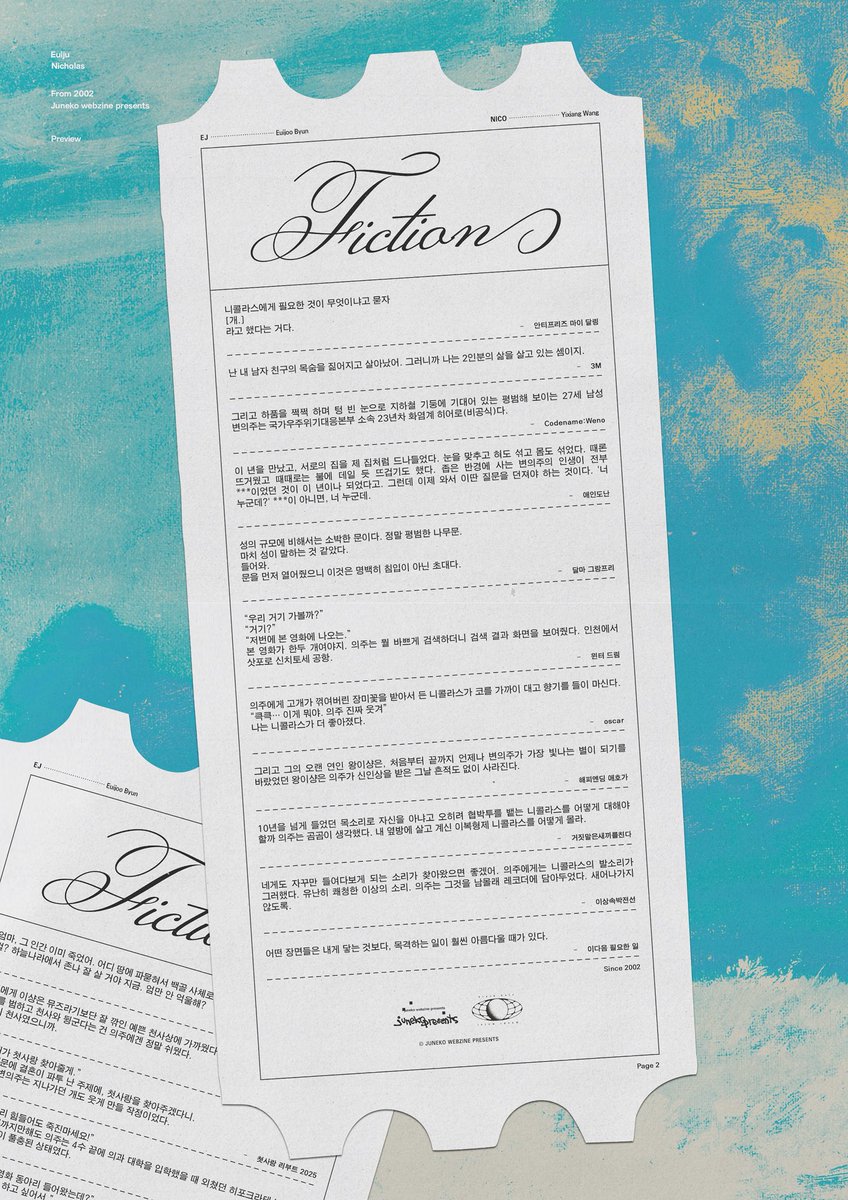 Euiju
Nicholas
From 2002
Juneko webzine presents
Preview
EJ Euijoo Byun
NICO Yixiang Wang
Fiction
니콜라스에게 필요한 것이 무엇이냐고 묻자
[개.]
라고 했다는 거다.
- 안티프리즈 마이 달링
난 내 남자 친구의 목숨을 짊어지고 살아났어. 그러니까 나는 2인분의 삶을 살고 있는 셈이지.
- 3M
그리고 하품을 쩍쩍 하며 텅 빈 눈으로 지하철 기둥에 기대어 있는 평범해 보이는 27세 남성
변의주는 국가우주위기대응본부 소속 23년차 화염계 히어로(비공식)다.
- Codename:Weno
이 년을 만났고, 서로의 집을 제 집처럼 드나들었다. 눈을 맞추고 혀도 섞고 몸도 섞었다. 때론
뜨거웠고 때때로는 불에 데일 듯 뜨겁기도 했다. 좁은 반경에 사는 변의주의 인생이 전부
***이었던 것이 이 년이나 되었다고. 그런데 이제 와서 이딴 질문을 던져야 하는 것이다. '너
누군데?' ***이 아니면, 너 누군데.
- 애인도난
성의 규모에 비해서는 소박한 문이다. 정말 평범한 나무문.
마치 성이 말하는 것 같았다.
들어와.
문을 먼저 열어줬으니 이것은 명백히 침입이 아닌 초대다.
- 달마 그랑프리
"우리 거기 가볼까?"
"거기?"
"저번에 본 영화에 나오는."
본 영화가 한두 개여야지. 의주는 뭘 바쁘게 검색하더니 검색 결과 화면을 보여줬다. 인천에서
삿포로 신치토세 공항.
- 윈터 드림
의주에게 고개가 꺾여버린 장미꽃을 받아서 든 니콜라스가 코를 가까이 대고 향기를 들이 마신다.
"큭큭… 이게 뭐야. 의주 진짜 웃겨"
나는 니콜라스가 더 좋아졌다.
- oscar
그리고 그의 오랜 연인 왕이샹은, 처음부터 끝까지 언제나 변의주가 가장 빛나는 별이 되기를
바랐었던 왕이샹은 의주가 신인상을 받은 그날 흔적도 없이 사라진다.
- 해피엔딩 애호가
10년을 넘게 들었던 목소리로 자신을 아냐고 오히려 협박투를 뱉는 니콜라스를 어떻게 대해야
할까 의주는 곰곰이 생각했다. 내 옆방에 살고 계신 이복형제 니콜라스를 어떻게 몰라.
- 거짓말은새끼를친다
네게도 자꾸만 들여다보게 되는 소리가 찾아왔으면 좋겠어. 의주에게는 니콜라스의 발소리가
그러했다. 유난히 쾌청한 이상의 소리. 의주는 그것을 남몰래 레코더에 담아두었다. 새어나가지
않도록.
- 이상속박전선
어떤 장면들은 내게 닿는 것보다, 목격하는 일이 훨씬 아름다울 때가 있다.
- 이다음 필요한 일
Since 2002
juneko webzine presents
junekopresents
© JUNEKO WEBZINE PRESENTS
Page 2
EJ Euijoo Byun
Fictio
엄마, 그 인간 이미 죽었어. 어디 땅에 파묻혀서 백골 사체로
걸? 하늘나라에서 존나 잘 살 거야 지금. 엄만 안 억울해?
에게 이상은 뮤즈라기보단 잘 깎인 예쁜 천사상에 가까웠다
를 범하고 천사와 뒹군다는 건 의주에겐 정말 쉬웠다.
천사였으니까.
가 첫사랑 찾아줄게."
문에 결혼이 파투 난 주제에, 첫사랑을 찾아주겠다니.
변의주는 지나가던 개도 웃게 만들 작정이었다.
- 첫사랑 리부트 2025
리 힘들어도 죽진마세요!"
까지만해도 의주는 4수 끝에 의과 대학을 입학했을 때 외쳤던 히포크라테
이 풀충된 상태였다.
영화 동아리 들어왔는데?"
하고 싶어서."